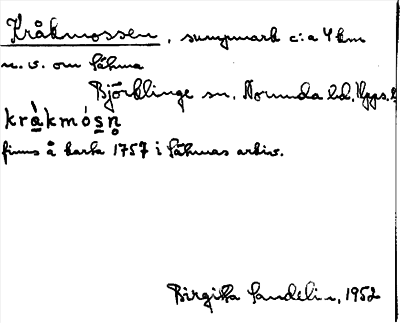 Kråkmossen, sumpmark c:a 4 km
n. v. om Sätuna
Björklinge sn, Norunda hd, Upps. l.
kràkmósn̥
finns å karta 1757 i Sätunas arkiv.
Birgitta Sandelin, 1952